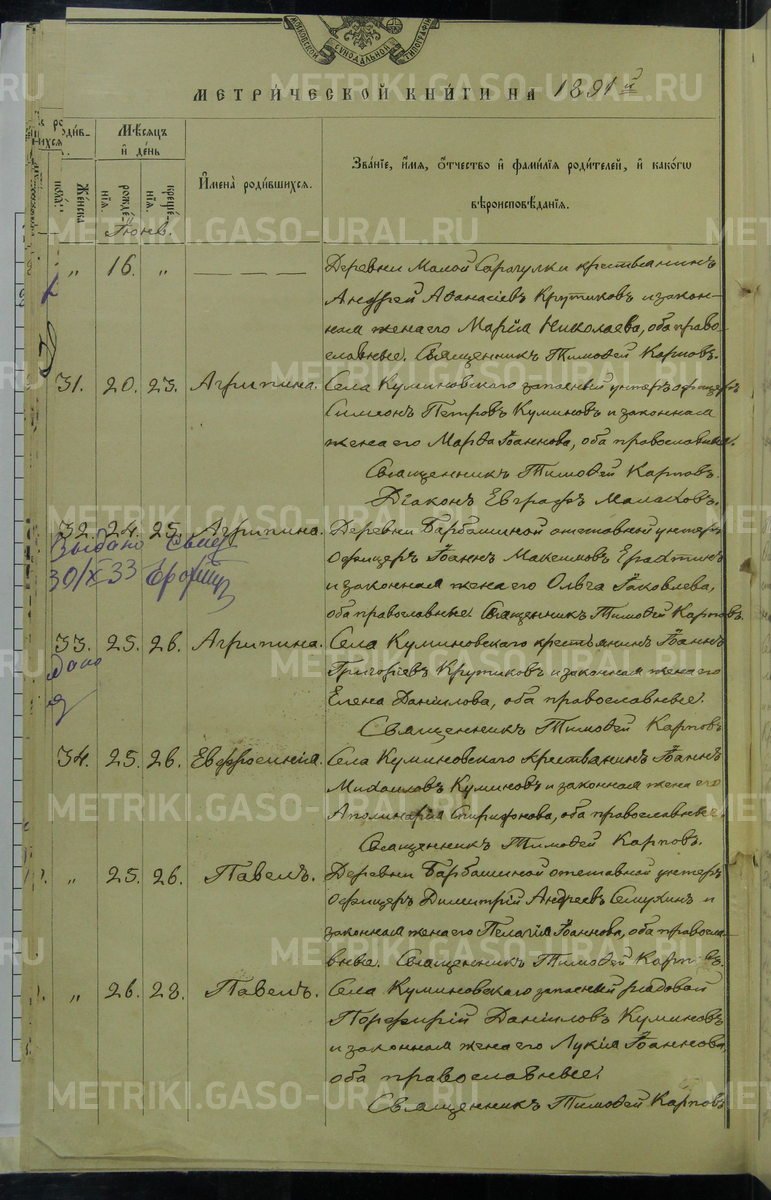 МОСКОВСКОЙ СУНОДАЛЬНОЙ ТИПОГРАФІИ
МЕТРИ́ЧЕСКОЙ КНИ́ГИ НА 1891й
роди́в-
шихся.
Мѣсяцъ
и день
Имена̀ роди́вшихся.
Зва́нїе, и́мя, ѻ҆́тчество и фами́лїя роди́телей, и како́гѡ
вѣроисповѣ́данїя.
Же́нска
рожде́-
нїя.
креще́-
нїя.
Іюнь.
" 16. " — — — Деревни Малой Сарагулки крестьянинъ
Андрей Аѳанасіевъ Крутиковъ и закон-
ная жена его Марія Николаева, оба право-
славные. Священникъ Тимоѳей Карповъ.
31. 20. 23. Агрипина. Села Куминовскаго запасный унтеръ офицеръ
Симеонъ Петровъ Куминовъ и законная
жена его Марѳа Іоаннова, оба православные.
Священникъ Тимоѳей Карповъ.
Діаконъ Евграфъ Малаховъ.
32. 24. 25. Агрипина. Деревни Барбашиной отставной унтеръ
Выдано
офицеръ Іоаннъ Максимовъ
30/X 33
и законная жена его Ольга Іаковлева,
оба православные. Священникъ Тимоѳей Карповъ.
33. 25. 26. Агрипина. Села Куминовскаго крестьянинъ Іоаннъ
Григоріевъ Крутиковъ и законная жена его
Елена Даніилова, оба православные.
Священникъ Тимоѳей Карповъ
34. 25. 26. Евфросинія. Села Куминовскаго крестьянинъ Іоаннъ
Михаиловъ Куминовъ и законная жена его
Аполинарія Спиридонова, оба православные.
Священникъ Тимоѳей Карповъ.
" 25. 26. Павелъ. Деревни Барбашиной отставной унтеръ
офицеръ Димитрій Андреевъ Семухинъ и
законная жена его Пелагія Іоаннова, оба правосла-
вные. Священникъ Тимоѳей Карповъ.
" 26. 28. Павелъ. Села Куминовскаго запасный рядовой
Порфирій Даніиловъ Куминовъ
и законная жена его Лукія Іоаннова,
оба православные.
Священникъ Тимоѳей Карповъ
METRIKI.GASO-URAL.RU